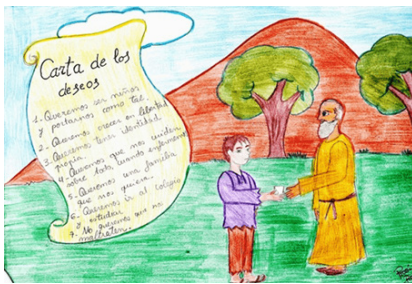 Carta de los
deseos
1- Queremos ser niños
y portarnos como tal.
2- Queremos crecer en libertad
3- Queremos tener identidad
propia.
4- Queremos que nos cuiden
sobre todo, cuando enfermamos
5- Queremos una familia
que nos quiera.
6- Queremos ir al colegio
y estudiar
7- No queremos que nos
maltraten.